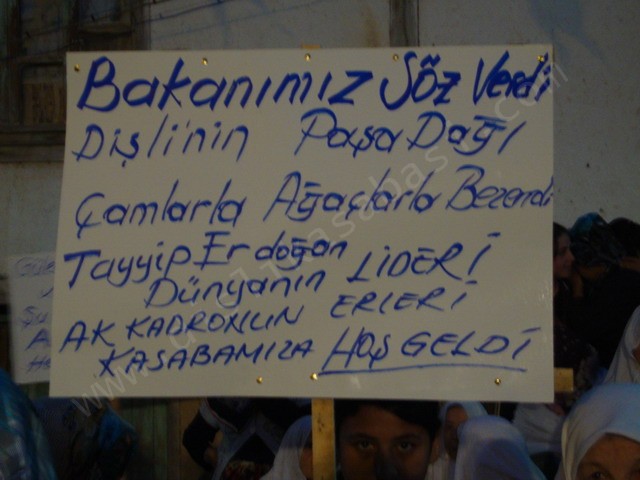 Bakanımız Söz Verdi
Dişli'nin Paşa Dağı
Çamlarla Ağaçlarla Bezendi
Tayyip Erdoğan
Dünyanın LİDERİ
AK KADRONUN ERLERİ
KASABAMIZA HOŞ GELDİ